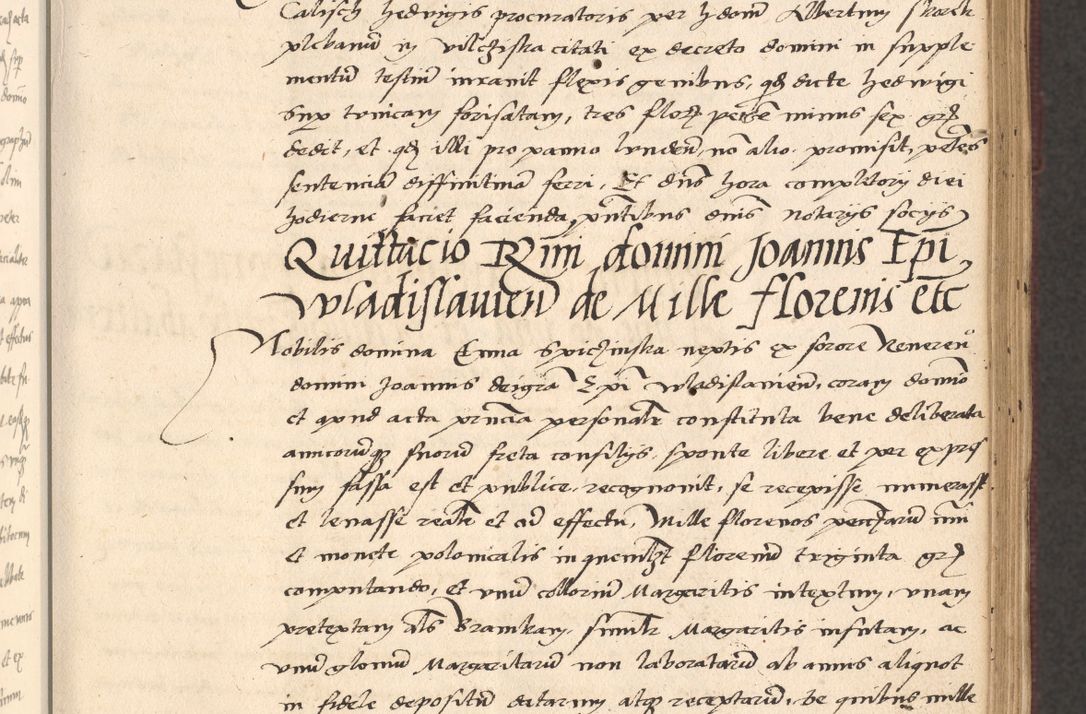 Calisch hedvigis procuratoris per h domi Albertum skorek
plebanum in vilchiska citati ex decreto domini in supple
mentum testium iuravit flexis genibus, qd dicte hedvigi
tunicam forisatam, tres flor minus sex grs
dedit, et qd illi pro panno lunden no alio promisit, petens
sentenciam diffinitivam ferri, Et dns hora completorij diei
hodierne faciet facienda pntibus dnis notarijs socijs
Quittacio Rmi domini Joannis Epi
wladislavien de Mille florenis etc
Nobilis domina Enna neptis ex sorore Reveren
domini Joannis dei gra Epi wladislavien, coram domino
et apud acta pncia personalr constituta bene deliberata
amicorumq suorum freta consilijs, sponte libere et per expres
sum fassa est et publice recognovit, se recepisse numerasse
et levasse realr et ad effectum, Mille florenos
et monete polonicalis in quemlibet florenum triginta grs
computando, et unum collorium Margaritis intextum, unam
pretextam als bramkam, similr Margaritis insutam, ac
unum glomum Margaritarum non laboratarum ab annis aliquot
in fidele depositum datarum atq receptarum, de quibus mille